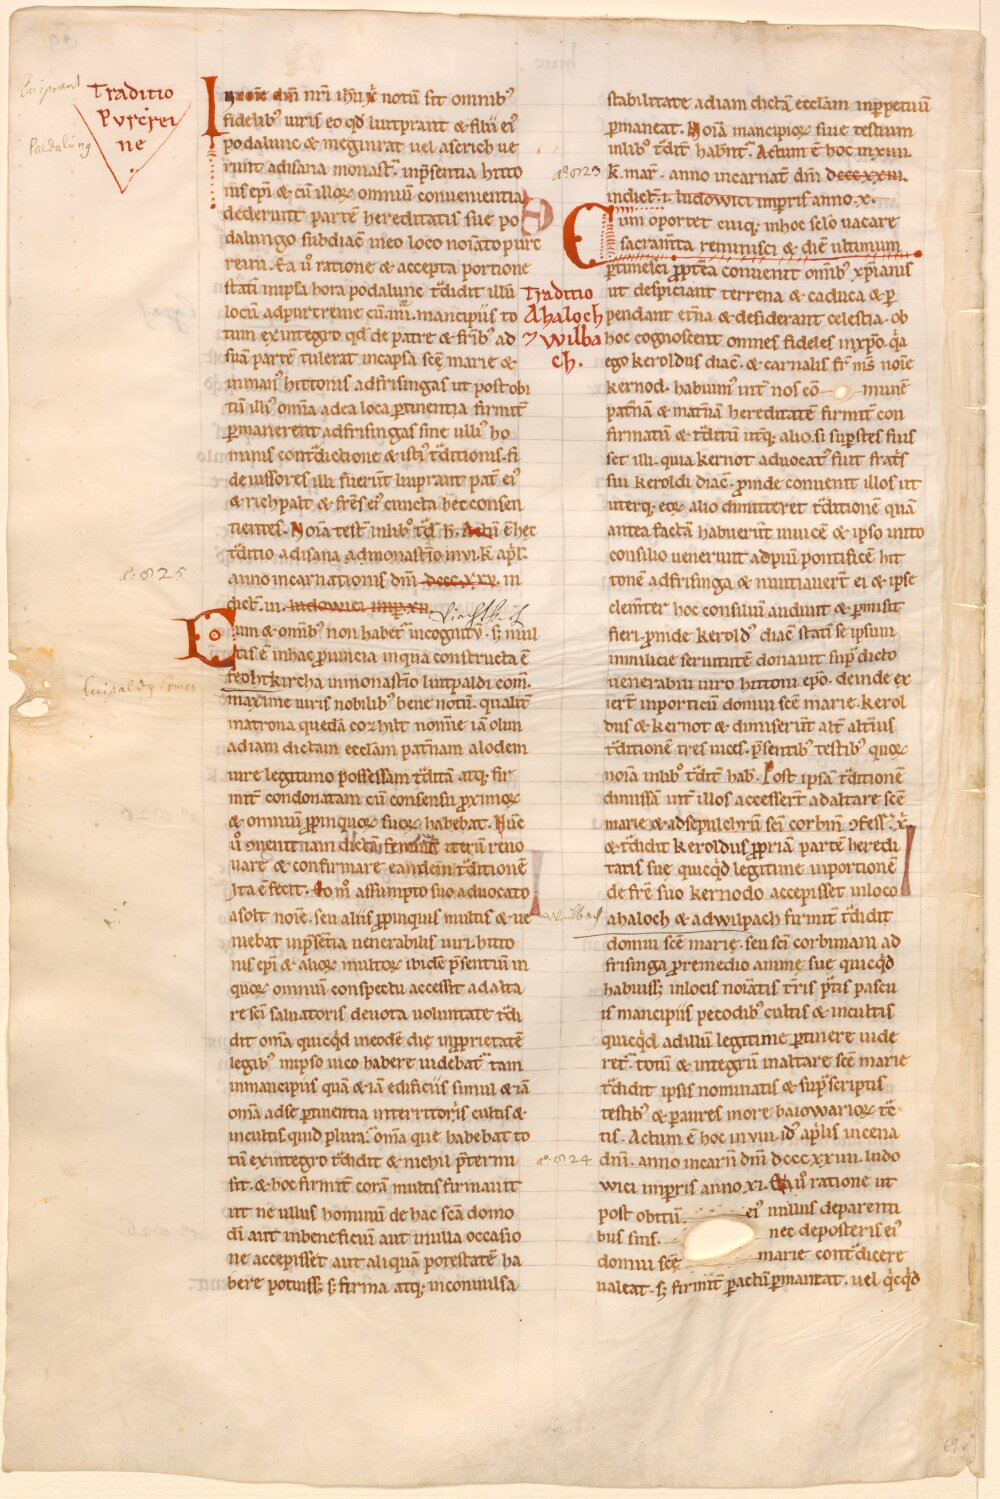 Traditio
Purchrei
ne
In noīe dn̄i nr̄i ihū xp̄i notū sit omnib᾽
fidelib᾽ uiris eo qd̄ liutprant & filii ei᾽
podalunc & meginrat uel aserich ue
nerunt ad isana monast̄. inp̄sentia hitto
nis ep̄i & cū illoꝝ omniū conuenientia
dederunt partē hereditatis sue po
dalungo subdiac̄ in eo loco noīato purc
reini. Ea u͛o ratione ut accepta portione
statī in ipsa hora podalunc t͛didit illū
locū ad purcreine cū .iiii. mancipiis to
tum ex integro qd̄ de patre & fr̄ib᾽ ad
suā partē tulerat in capsa sc̄ę marie &
in man᾽ hittonis ad frisingas ut post obi
tū illi᾽ om̄ia ad ea loca ꝑtinentia firmit̄
ꝑmanerent ad frisingas sine ulli᾽ ho
minis cont͛dictione & isti᾽ t͛ditionis. fi
deiussores illi fuer̄t liutprant pat͛ ei᾽
& richpalt & fr̄es ei᾽ cuncta hęc consen
tientes. Noīa test̄ in lib᾽ t͛d̄ h̄. Actū ē hęc
t͛ditio ad isana ad monast̄io in .vi. k͛ ap̄l.
anno incarnationis dn̄i dcccxxv. in
dict̄. iii. ludowici imp. xii.
Viechtkirch
Cum & omnib᾽ non habet͛ incognitū. s; mul
tis ē in hac ꝓuincia in qua constructa ē
feohtkircha in monast̄io liutpaldi com̄.
maxime uiris nobilib᾽ bene notū. qualit̄
matrona quedā cozhilt nomīe iā olim
ad iam dictam ecclam pat͛nam alodem
iure legitimo possessam t͛ditā atq; fir
mit̄ condonatam cū consensu ꝓximoꝝ
& omniū ꝓpinquoꝝ suoꝝ habebat. Nūc
u͛o ꝯuenit nam dictā feminā iterū reno
uare & confirmare eandem t͛ditionē
Ita ē fecit. Tom᾽ assumpto suo aduocato
asolt noīe. seu aliis ꝓpinquis multis & ue
niebat inp̄sentia uenerabilis uiri hitto
nis ep̄i & alioꝝ multoꝝ ibidē p̄sentiū in
quoꝝ omniū conspectu accessit ad alta
re sc̄i saluatoris deuota uoluntate t͛di
dit om̄ia quicq̄d in eodē die in ꝓprietatē
legib᾽ in ipso uico habere uidebat͛ tam
in mancipiis quā & iā edificiis simul & iā
om̄ia ad se ꝑtinentia in territoriis cultis &
incultis quid plura. om̄ia que habebat to
tū ex integro t͛didit & nichil p̄termi
sit. & hoc firmit̄ corā multis firmauit
ut ne ullus hominū de hac sc̄ā domo
dī aut in beneficiū aut in ulla occasio
ne accepisset aut aliquā potestatē ha
bere potuiss; s; firma atq; inconuulsa
aº. 825
Luipaldꝯ Comes
stabilitate ad iam dictā ecclam inꝑpetuū
ꝑmaneat. Noīa mancipioꝝ siue testium
in lib᾽ t͛dit̄ habn̄t͛. Actum ē hoc in xiiii.
k͛. mar͛. anno incarnat̄ dn̄i dcccxxiii.
indict̄. i. ludowici imp̄ris anno. x.
aº. 823
Traditio
Ahaloch
⁊ Wilba
ch.
Cum oportet cuiq; in hoc sc̄lo uacare
sacram̄ta reminisci & diē ultimum
ꝑtimesci ꝓpt͛ea conuenit om̄ib᾽ xp̄ianis
ut despiciant terrena & caduca & ꝑ
pendant et͛na & desiderant celestia. ob
hoc cognoscent omnes fideles in xp̄o. q͛a
ego keroldus diac̄. & carnalis fr̄ m̄s noīe
kernod. habuim᾽ int͛ nos cō munē
pat͛nā & mat͛nā hereditatē firmit̄ con
firmatū & t͛ditū ut̄q; alio. si suꝑstes fuis
set illi. quia kernot aduocat᾽ fuit frat͛s
sui keroldi diac̄. ꝓinde conuenit illos ut
ut̄q; eoꝝ alio dimitteret t͛ditionē quā
antea factā habuer̄t inuicē & ipso inito
consilio uenerunt ad piū pontificē hit
tonē ad frisinga & nuntiauer̄t ei & ipse
clem̄ter hoc consiliū audiuit & ꝑmisit
fieri. ꝓinde kerold᾽ diac̄ statī se ipsum
in milicie seruitutē donauit sup͛dicto
uenerabili uiro hittoni ep̄o. deinde ex
ier̄t in porticū domui sc̄ę marie. kerol
dus & kernot & dimiser̄t alt͛ alt͛ius
t͛ditionē tres uices. p̄sentib᾽ testib᾽ quoꝝ
noīa in lib᾽ t͛dit̄ hab̄. Post ipsā t͛ditionē
dimissā int͛ illos accesser̄t ad altare sc̄ę
marie & ad sepulchrū sc̄i corbin̄ ꝯfess᾽. x̄.
& t͛didit keroldus ꝓpriā partē heredi
tatis suę quicq̄d legitime in portionē
de fr̄e suo kernodo accepisset in loco
ahaloch & ad wilpach firmit̄ t͛didit
domui sc̄ę marię. seu sc̄i corbiniani ad
frisinga ꝓ remedio animę suę quicq̄d
habuiss; in locis noīatis t͛ris p͛tis pascu
is mancipiis pecodib᾽ cultis & incultis
quicq̄d ad illū legitime ꝑtinere uide
ret͛. totū & integrū in altare sc̄ę marie
t͛didit ipsis nominatis & sup͛scriptis
testib᾽ & ꝑ aures more baiowarioꝝ t͛c
tis. Actum ē hoc in viii. id᾽ ap̄lis in cena
dn̄i. anno incarn̄ dn̄i dcccxxiiii. ludo
wici imp̄ris anno xi. Ea u͛o ratione ut
post obitū ei᾽ nullus de parenti
bus suis. nec de posteris ei᾽
domui sc̄ę marie cont͛dicere
ualeat. s; firmit̄ ꝑ actū ꝑmaneat. uel q͛cq̄d
aº. 824
69v